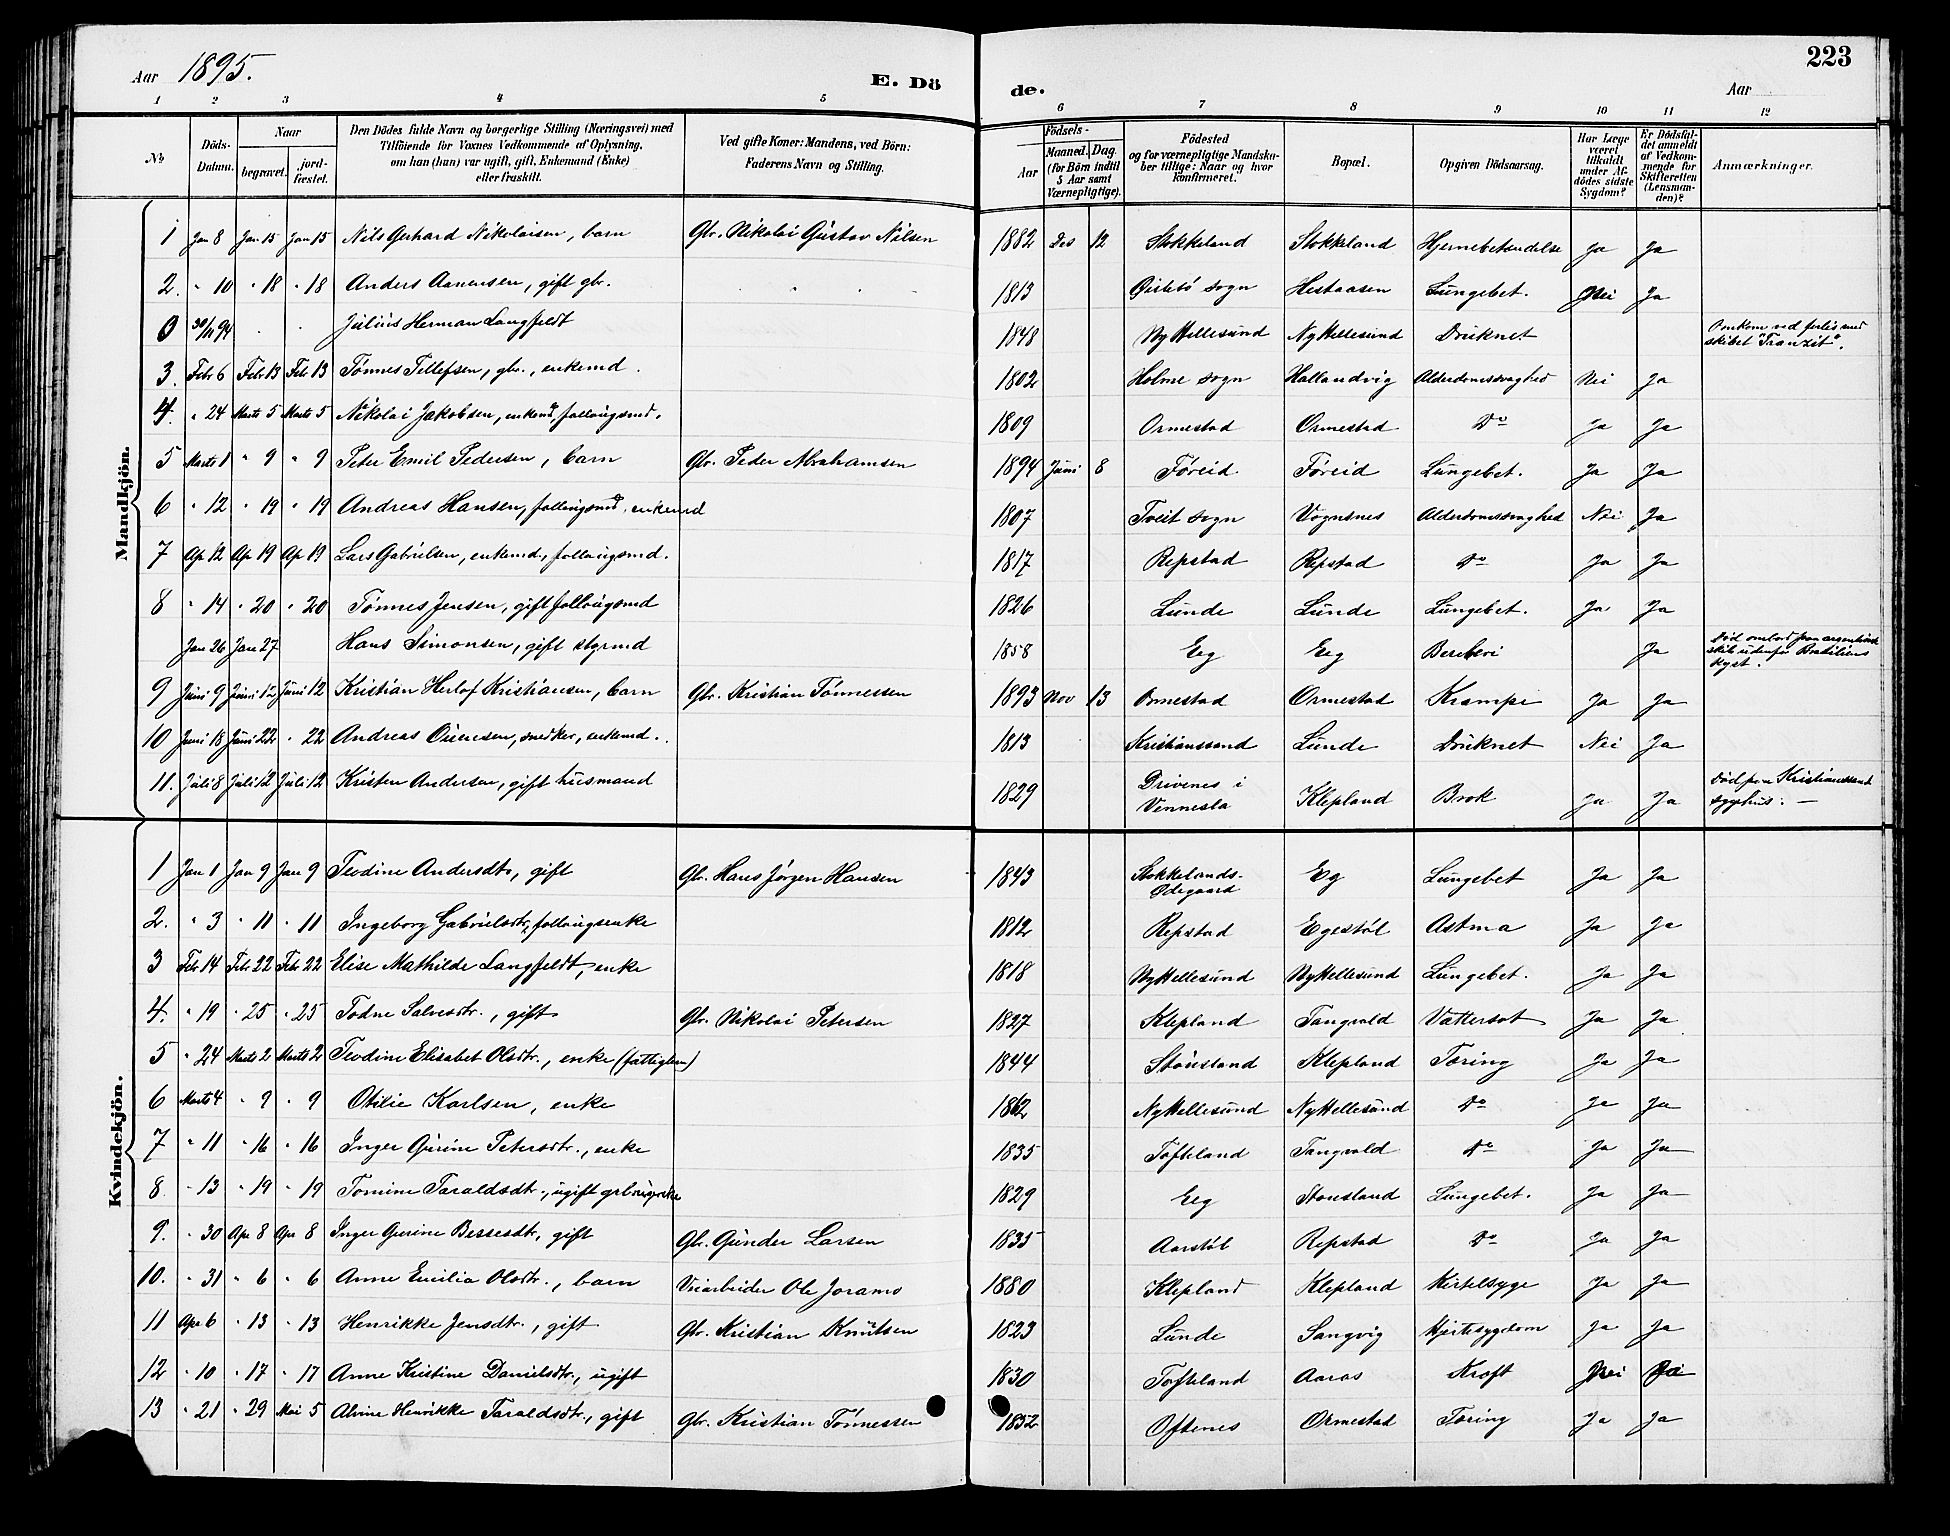 Aar 1895.
E. Dö
de.
Aar
223
1 2 3 4 5 6 7 8 9 10 11 12
No
Döds-Datum.
Naar
begravet.
jord-fæstet.
Den Dödes fulde Navn og borgerlige Stilling (Næringsvei) med
Tilföiende for Voxnes Vedkommende af Oplysning,
om han (hun) var ugift, gift, Enkemand (Enke)
eller fraskilt.
Ved gifte Koner: Mandens, ved Börn:
Faderens Navn og Stilling.
Födsels-
Aar
Maaned. Dag.
(for Börn indtil
5 Aar samt
Værnepligtige).
Födested
og for værnepligtige Mandska-
ber tillige: Naar og hvor
konfirmeret.
Bopæl.
Opgiven Dödsaarsag.
Har Læge
været
tilkaldt
under Af-
dödes sidste
Sygdom?
Er Dödsfal-
det anmeldt
af Vedkom-
mende for
Skifteretten
(Lensman-
den)?
Anmærkninger.
Mandkjön.
1 Jan 8 Jan 15 Jan 15 Nils Gerhard Nikolaisen, barn Gbr. Nikolai Gustav Nilsen 1882 Des 12 Stokkeland Stokkeland Hjernebetændelse Ja Ja
2. " 10 " 18 " 18 Anders Aanensen, gift gbr. 1813 Øislebö sogn Hestaasen Lungebet. Nei Ja
0 30/11 94 Julius Herman Langfeldt 1848 Ny Hellesund Ny Hellesund Druknet Omkom ved forlis med
skibet "Tranzit".
3. Febr 6 Febr 13 Febr 13 Tønnes Tellefsen, gbr., enkemd. 1802 Holme sogn Hallandvig Alderdomssvaghed Nei Ja
4. " 24 Marts 5 Marts 5 Nikolai Jakobsen, enkemd, follougsmd. 1809 Ormestad Ormestad Do Ja Ja
5 Marts 1 " 9 " 9 Peter Emil Pedersen, barn Gbr. Peder Abrahamsen 1894 Juni 8 Føreid Føreid Lungebet. Ja Ja
6 " 12 " 19 " 19 Andreas Hansen, follougsmd, enkemd 1807 Tveit sogn Vognsnes Alderdomssvaghed Nei Ja
7 Ap 12 Ap 19 Ap 19 Lars Gabrielsen, enkemd., follougsmd. 1817 Repstad Repstad Do Ja Ja
8 " 14 " 20 " 20 Tønnes Jensen, gift follougsmd 1826 Lunde Lunde Lungebet. Ja Ja
Jan 26 Jan 27 Hans Simonsen, gift styrmd 1858 Eeg Eeg Beriberi Ja Død ombord paa argentinsk
skib udenfor Brasiliens
kyst.
9 Juni 9 Juni 12 Juni 12 Kristian Herlof Kristiansen, barn Gbr. Kristian Tønnessen 1893 Nov 13 Ormestad Ormestad Krampe Ja Ja
10 Juni 18 Juni 22 " 22 Andreas Ouensen, snedker, enkemd. 1813 Kristianssand Lunde Druknet Nei Ja
11. Juli 8 Juli 12 Juli 12 Kristen Andersen, gift husmand 1829 Drivenes i
Vennesla Klepland Brok Ja Ja Død paa Kristianssand
sygehus. —
Kvindekjön.
1 Jan 1 Jan 9 Jan 9 Teodine Andersdtr, gift Gbr. Hans Jørgen Hansen 1843 Stokkelands-
Ødegaard Eg Lungebet Ja Ja
2. " 3 " 11 " 11 Ingeborg Gabrielsdtr, follougsenke 1812 Repstad Egestøl Astma Ja Ja
3 Febr 14 Febr 22 Febr 22 Elise Mathilde Langfeldt, enke 1818 Ny Hellesund Ny Hellesund Lungebet. Ja Ja
4. " 19 " 25 " 25 Todne Salvesdtr., gift Gbr. Nikolai Petersen 1827 Klepland Tangvald Vattersot Ja Ja
5 " 24 Marts 2 Marts 2 Teodine Elisabet Olsdtr., enke (fattiglem) 1844 Stousland Klepland Tæring Ja Ja
6 Marts 4 " 9 " 9 Otilie Karlsen, enke 1862 Ny Hellesund Ny Hellesund Do Ja Ja
7 " 11 " 16 " 16 Inger Gurine Petersdtr., enke 1835 Tofteland Tangvald Do Ja Ja
8. " 13 " 19 " 19 Tomine Taraldsdtr., ugift 1829 Eeg Stousland Lungebet. Ja Ja
9. " 30 Apr 8 Apr 8 Inger Gurine Bessesdtr, gift Gbr. Gunder Larsen 1835 Aarstøl Repstad Do Ja Ja
10. " 31 " 6 " 6 Anne Emilia Olsdtr., barn Veiarbeider Ole Joramo 1880 Klepland Klepland Kirtelsyge Ja Ja
11 Apr 6 " 13 " 13 Henrikke Jensdtr., gift Gbr. Kristian Knutsen 1823 Lunde Sangvig Hjertesygdom Ja Ja
12 " 10 " 17 " 17 Anne Kristine Danielsdtr., ugift 1830 Tofteland Aaros Kræft Nei
13 " 21 " 29 Mai 5 Alvine Henrikke Taraldsdtr., gift Gbr. Kristian Tönnessen 1852 Oftenes Ormestad Tæring Ja Ja